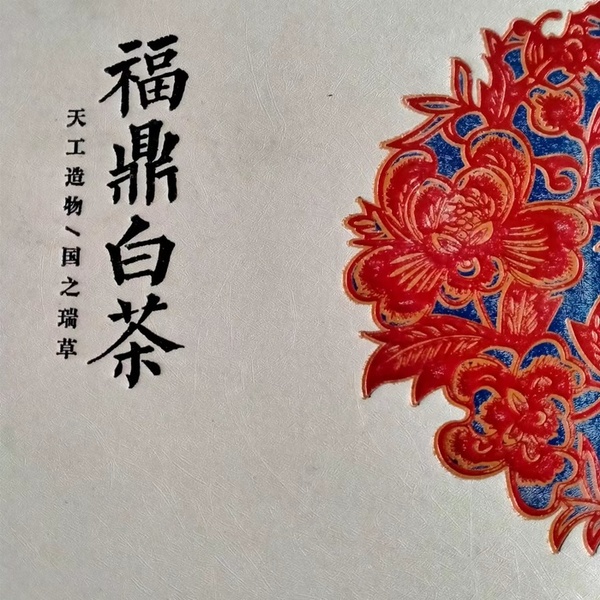 福鼎白茶
天工造物/国之瑞草